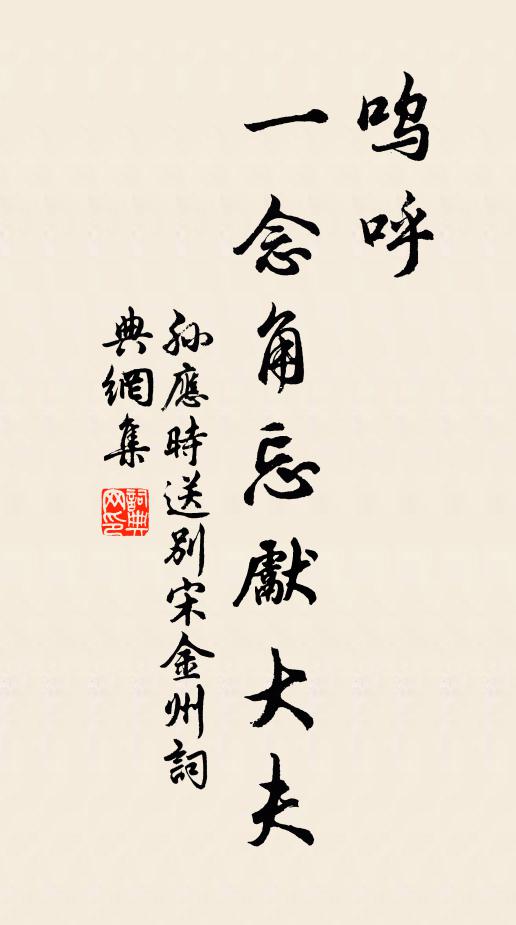 嗚呼
一念角忘獻大夫
孫應時送別宋金州詞
典網集
詞典网印